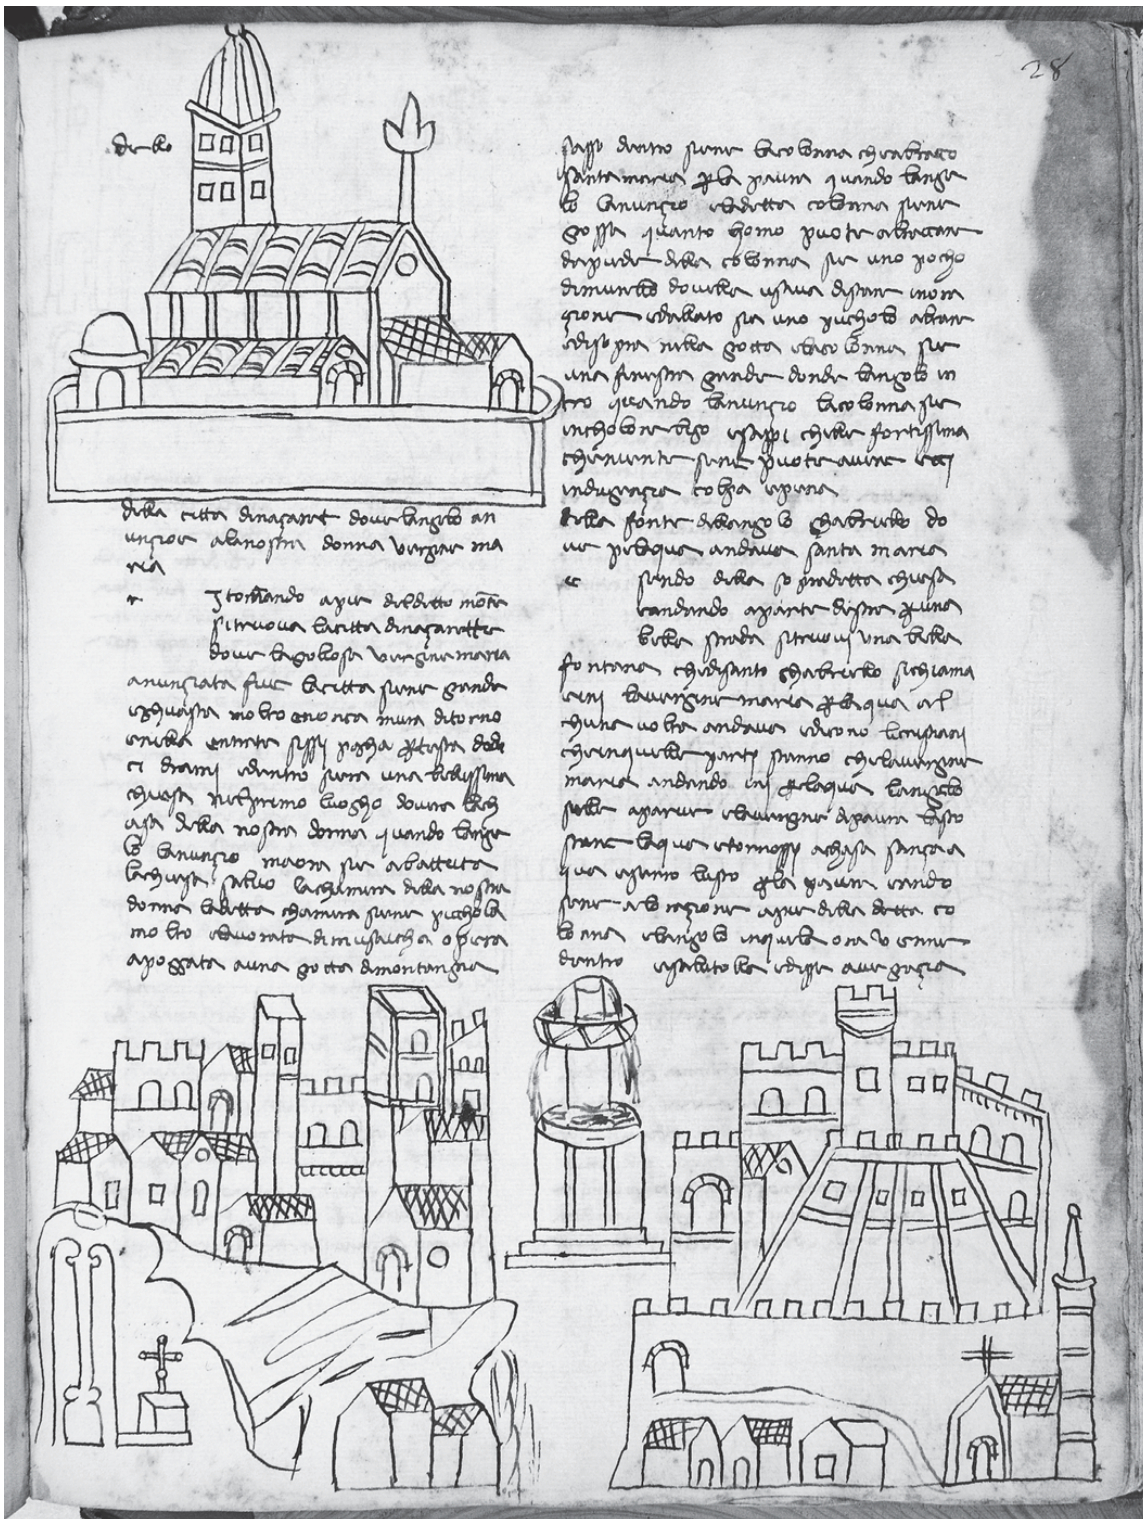 28
de llo
della citta dinaçaret dove langelo an
unçioe alanostra donna vergine ma
ria
r Itornando apie deldetto monte
sitruova lacitta dinaçarette
dove lagoliosa vergine maria
anunçiata fue lacitta siene grande
eghuasta molto enonca mura ditorno
entrate
ci drami edentro siena una bellissima
chiesa nelprimo luogho dovera lach
asa della nostra donna quando lange
lo lanunçio maora sie abattuta
lachiesa salvo lachamera della nostra
donna ladetta chamera siene picchola
molto elavorata dimusaicha opera
apoggata auna grotta dimontangnia
sasso dentro siene lacolonna cheabraccio
santa maria p la paura quando lange
lo lanunçio eladetta colonna siene
grossa quanto homo puote abracciare
dapiede della colonna sie uno pocho
dimurello dovella usava distare inora
çione edallato sia uno picholo altare
edisopra nella grotta elacolonna sie
una finestra grande donde langelo in
tro quando lanunçio lacolonna sie
incholore esappi chelle fortissima
cheniente sene puote avere ecci
indugiençia colpa epena
della fonte dellangelo ghabriello do
ve pelaqua andava santa maria
e sendo della sopradetta chiesa
eandando aparte destra p una
bella strada sitruovi una bella
fontana chedisanto ghabriello sichiama
eivi lavergine maria p laqua al
chune volte andava edicono licristiani
cheinquelle parti stanno chelavergine
maria andando ivi p laqua langelo
selle aparve elavergine dipaura lascio
stare laqua etornossi achasa sança a
qua p la paura eando
sene alloraçione apie della detta co
lonna elangelo inquela ora venne
dentro esalutolla edisse ave graçia